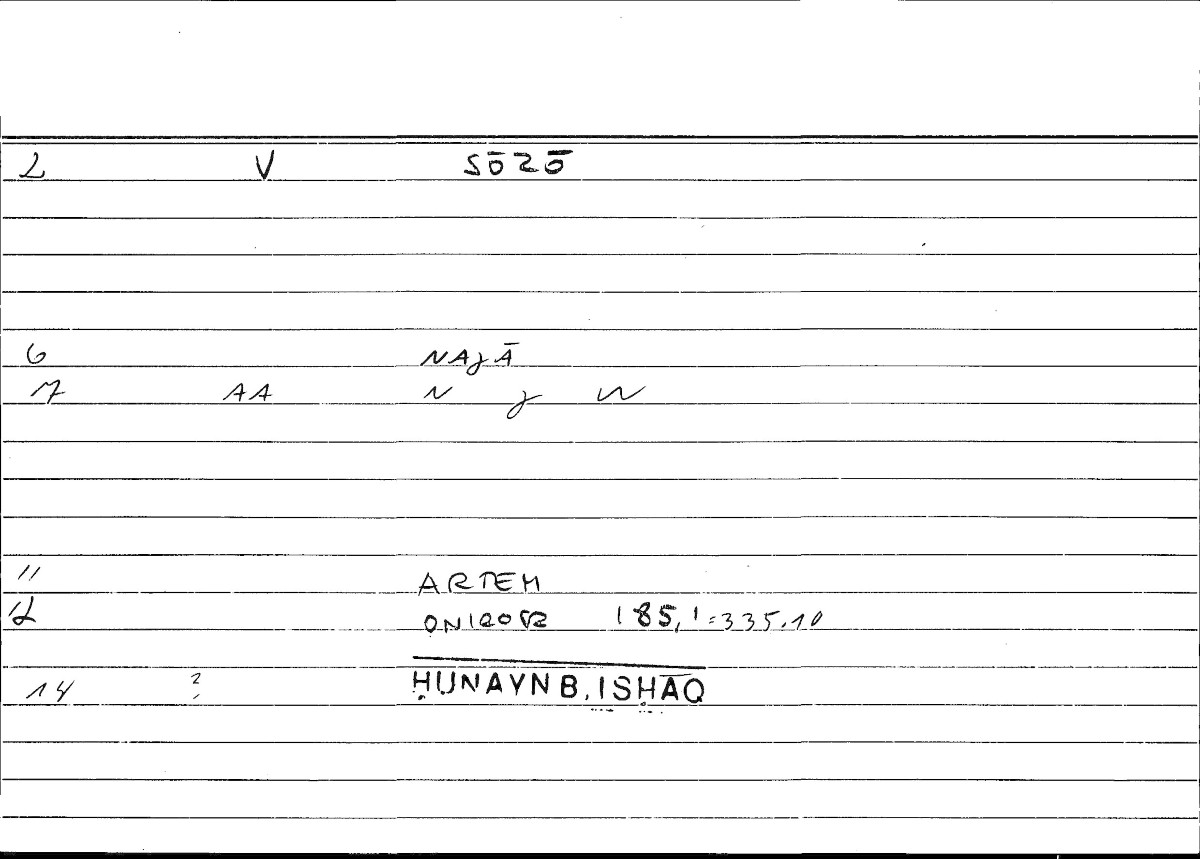 2 V SŌZŌ
6 NAJĀ
7 AA N J W
11 ARTEM
12 ONIROCR 185,1=335.10
14 ? ḤUNAYN B. ISḤĀQ